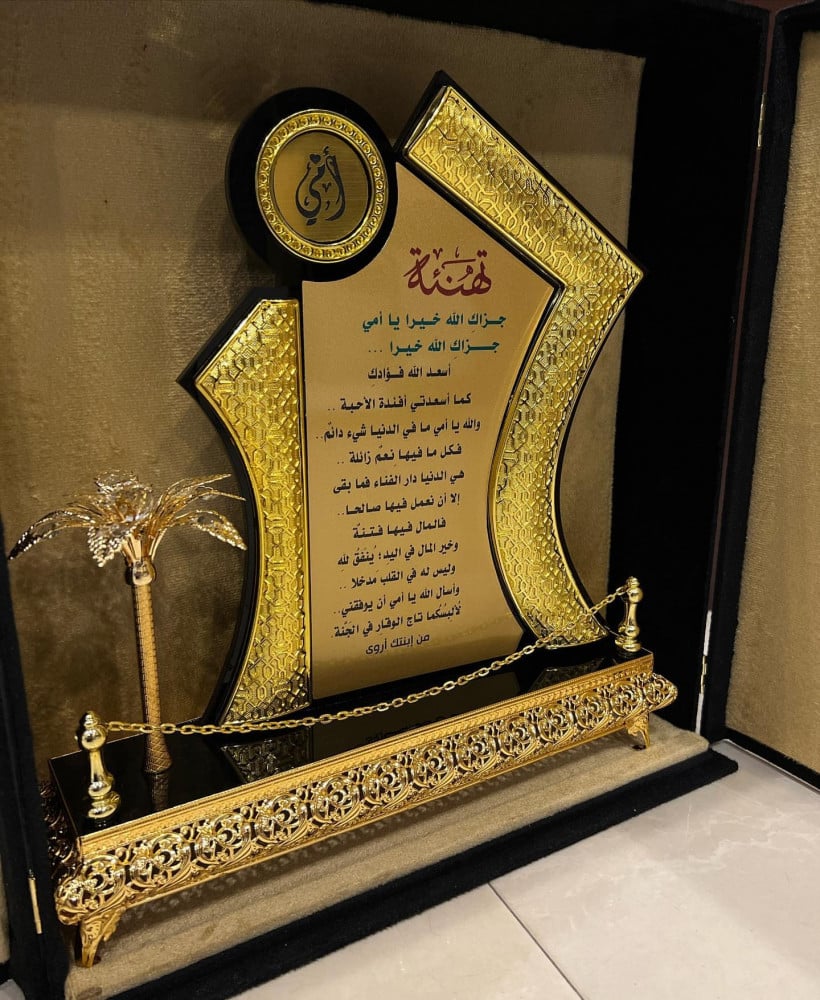 أمي
تهنئة
جزاكِ الله خيرا يا أمي
جزاكِ الله خيرا ...
أسعد الله فؤادكِ
كما أسعدتي أفئدة الأحبة ..
والله يا أمي ما في الدنيا شيء دائمٌ ..
فكل ما فيها نِعمٌ زائلة ..
هي الدنيا دار الفناء فما بقى
إلا أن نعمل فيها صالحا..
فالمال فيها فتنةٌ
وخير المال في اليد؛ يُنْفَقُ لله
وليس له في القلب مَدخلا ..
وأسأل الله يا أمي أن يوفقني..
لأُلبِسُكُما تاج الوقار في الجَنّة.
من إبنتك أروى